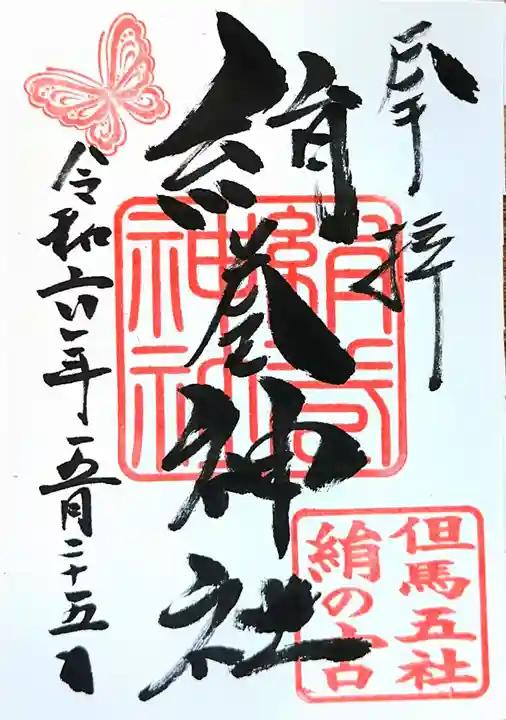 奉拝
絹巻神社
絹巻神社
令和六年五月二十五日
但馬五社
絹の宮